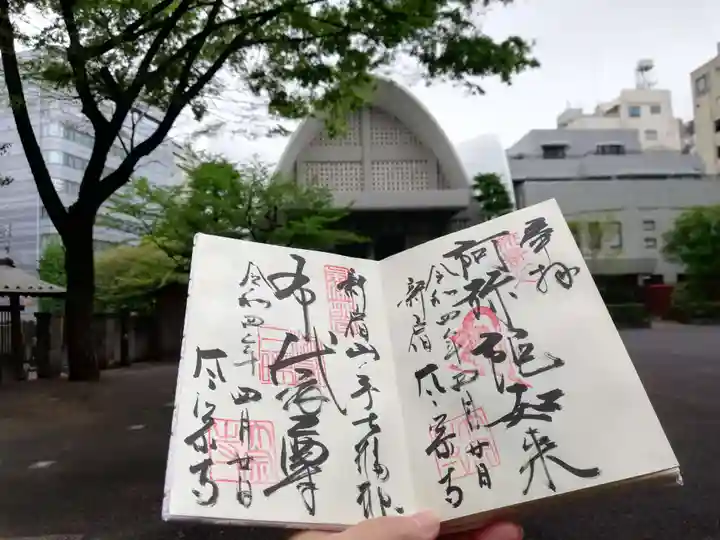 奉拝
阿弥陀如来
令和四年四月廿日
新宿
太宗寺
新宿山ノ手七福神
布袋尊
令和四年四月廿日
太宗寺